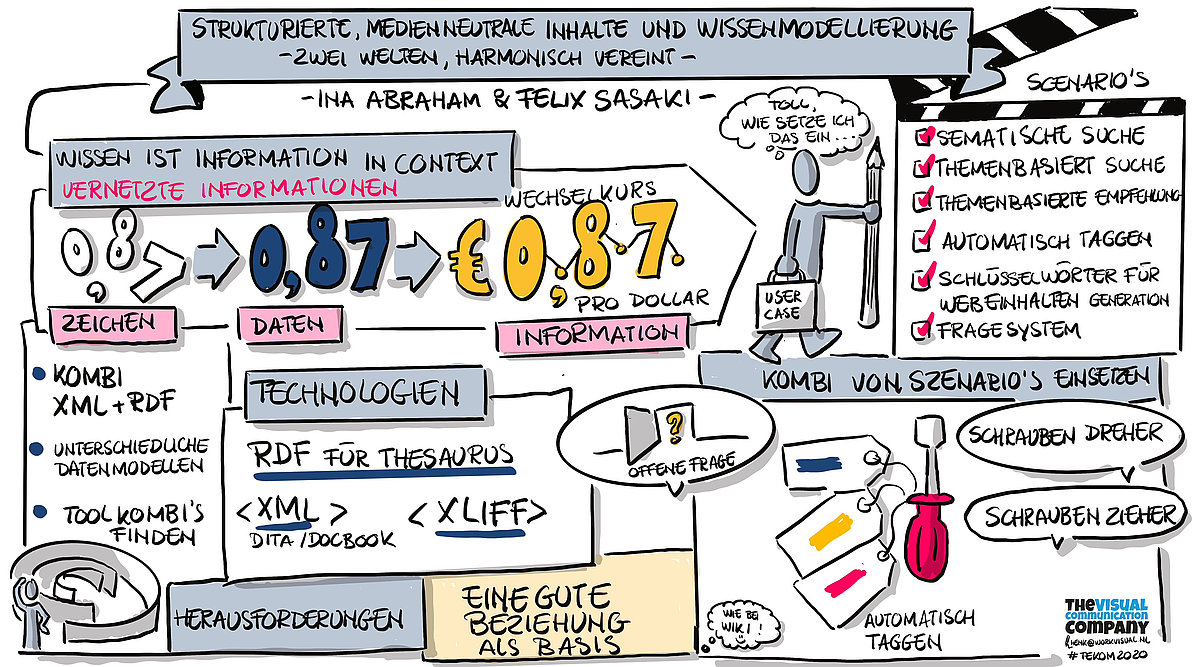 STRUKTURIERTE, MEDIENNEUTRALE INHALTE UND WISSENMODELLIERUNG
- ZWEI WELTEN, HARMONISCH VEREINT -
- INA ABRAHAM & FELIX SASAKI -
WISSEN IST INFORMATION IN CONTEXT
VERNETZTE INFORMATIONEN
0,87
0,87
WECHSELKURS
€ 0,87
PRO DOLLAR
ZEICHEN
DATEN
INFORMATION
TOLL,
WIE SETZE ICH
DAS EIN...
USER
CASE
SCENARIO'S
SEMATISCHE SUCHE
THEMENBASIERT SUCHE
THEMENBASIERTE EMPFEHLUNG
AUTOMATISCH TAGGEN
SCHLÜSSELWÖRTER FÜR
WEBEINHALTEN GENERATION
FRAGESYSTEM
• KOMBI
XML + RDF
• UNTERSCHIEDLICHE
DATENMODELLEN
• TOOL KOMBI'S
FINDEN
HERAUSFORDERUNGEN
TECHNOLOGIEN
RDF FÜR THESAURUS
<XML>
<XLIFF>
DITA / DOCBOOK
?
OFFENE FRAGE
EINE GUTE
BEZIEHUNG
ALS BASIS
KOMBI VON SZENARIO'S EINSETZEN
SCHRAUBEN DREHER
SCHRAUBEN ZIEHER
AUTOMATISCH
TAGGEN
WIE BEI
WIKI!
THE VISUAL
COMMUNICATION
COMPANY
HENK@WORKVISUAL.NL
#TEKOM2020